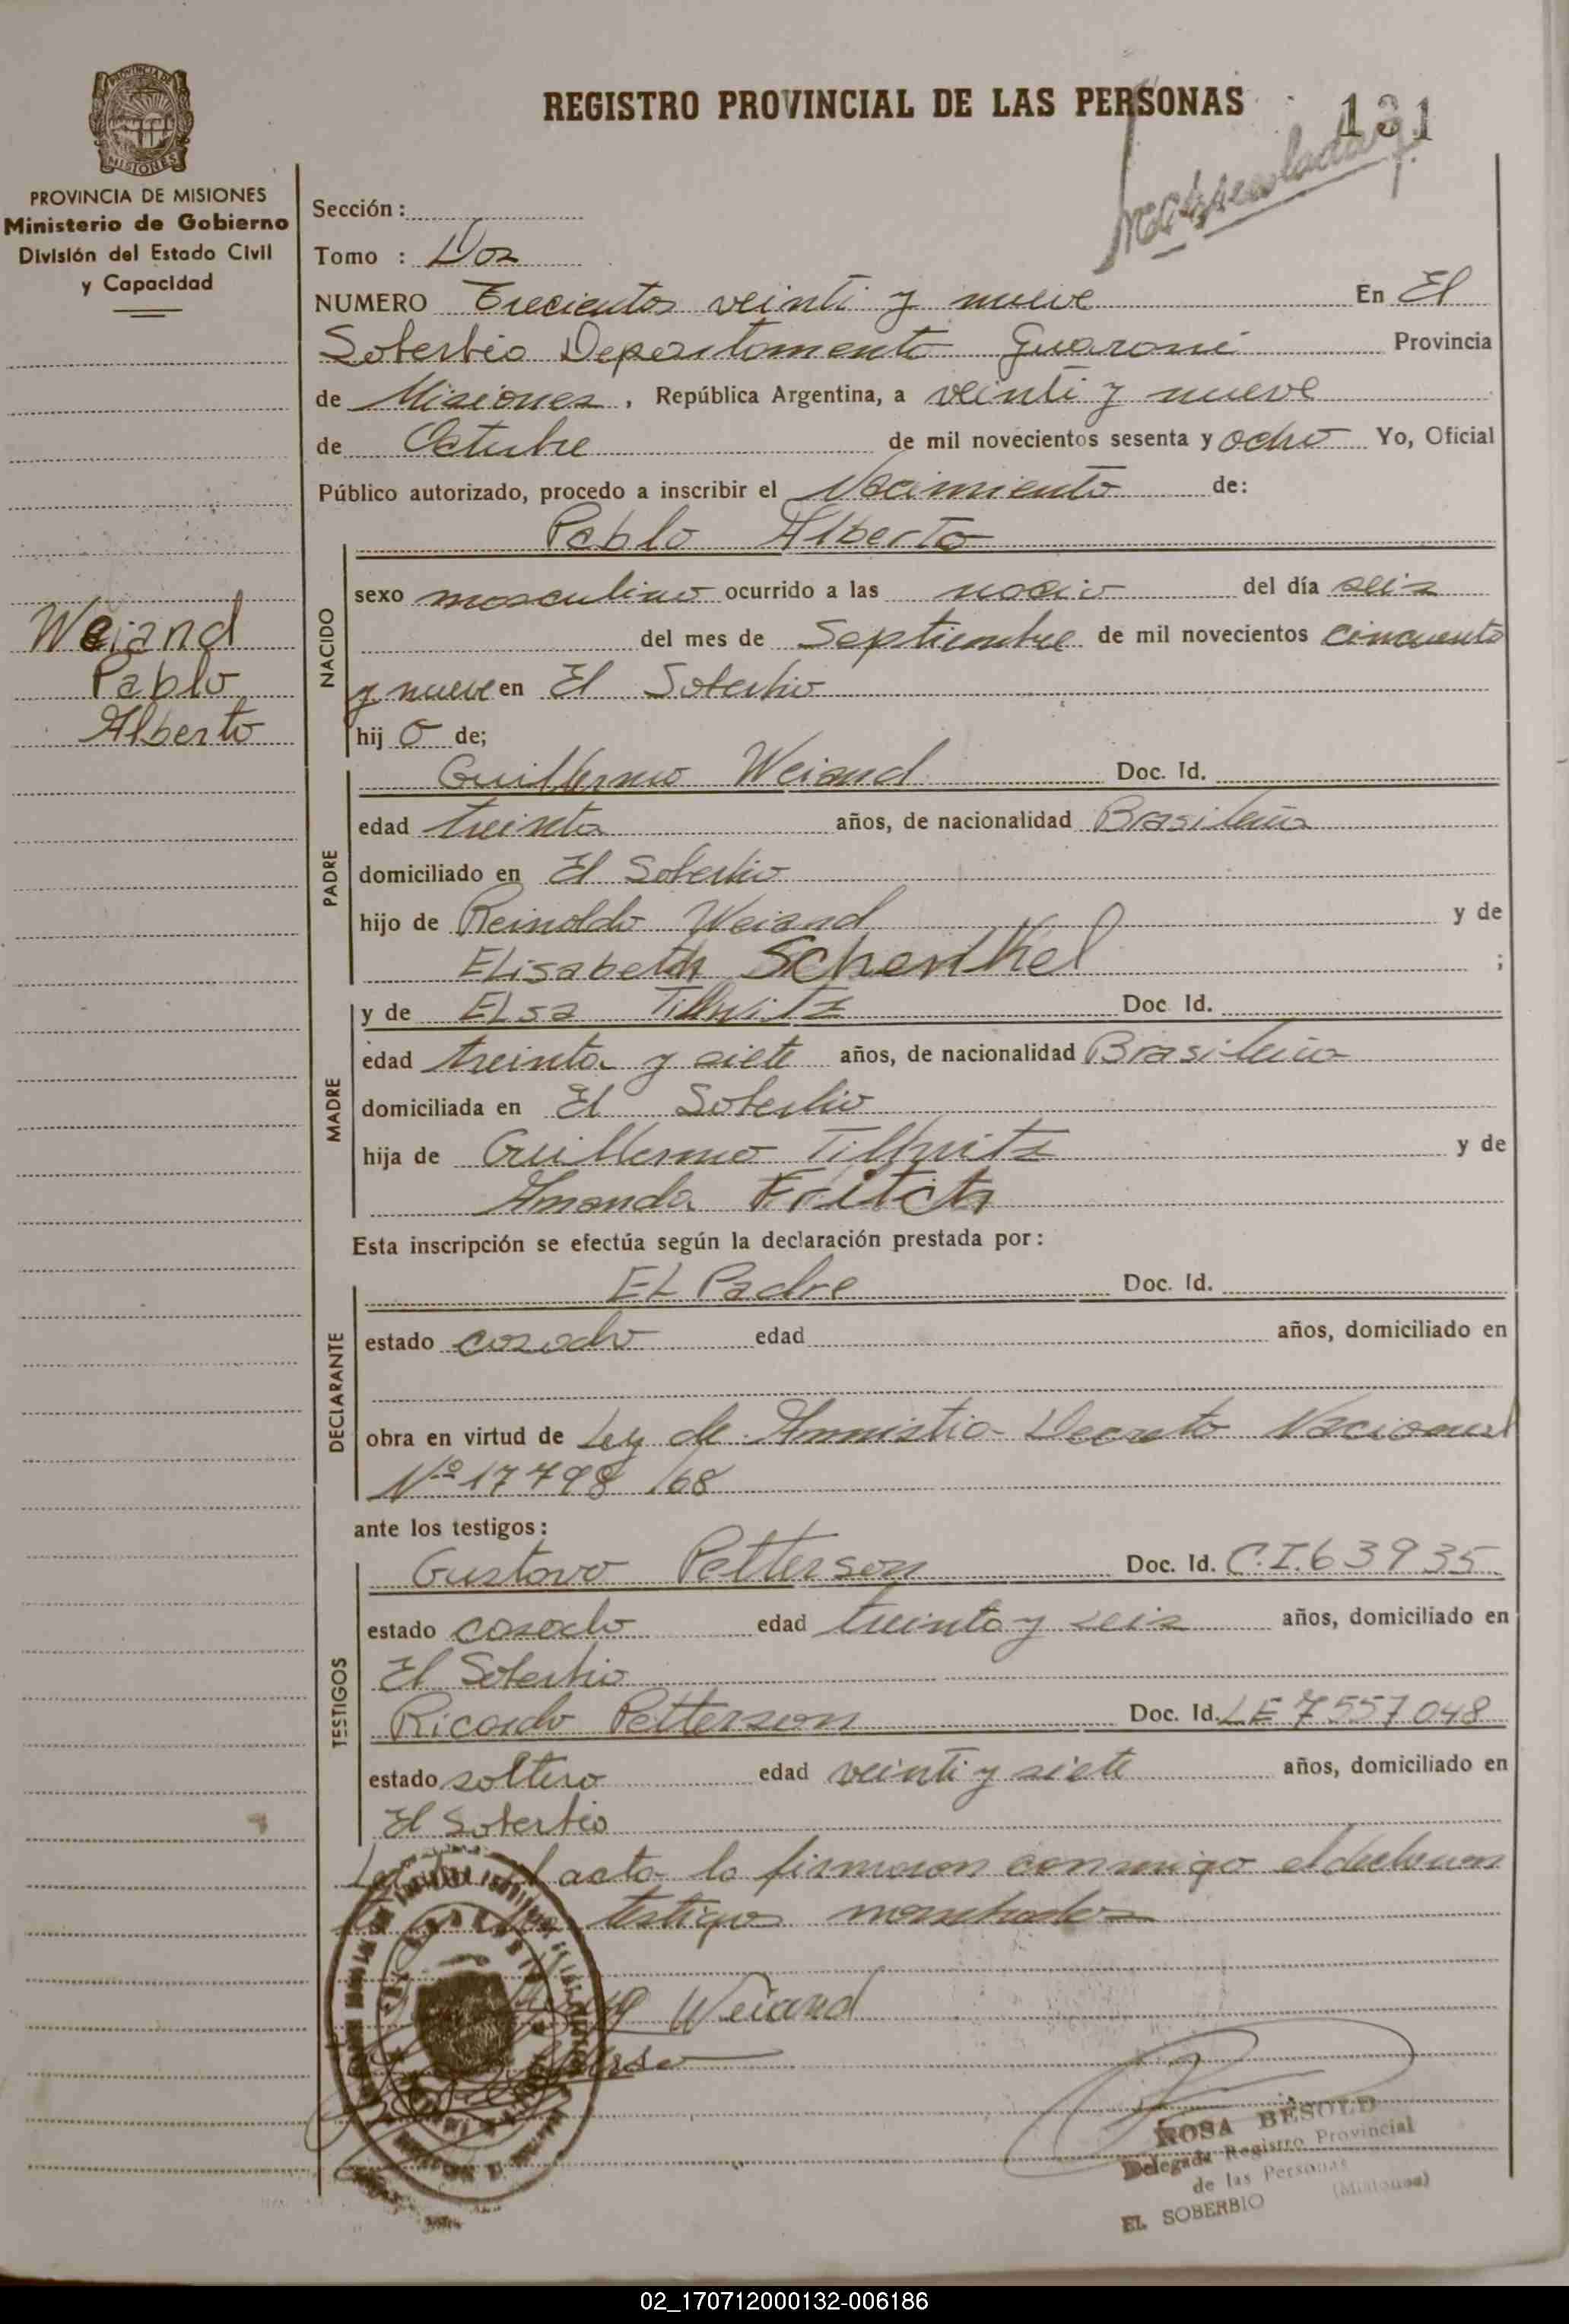 REGISTRO PROVINCIAL DE LAS PERSONAS
131
PROVINCIA DE MISIONES
MISIONES
PROVINCIA DE MISIONES
Ministerio de Gobierno
División del Estado Civil
y Capacidad
Sección :
Tomo : Dos
NUMERO Trecientos veinti y nueve En El
Soberbio Departamento Guarani Provincia
de Misiones , República Argentina, a veinti y nueve
de Octubre de mil novecientos sesenta y ocho Yo, Oficial
Público autorizado, procedo a inscribir el Nacimiento de:
Pablo Alberto
Weiand
Pablo
Alberto
NACIDO
sexo masculino ocurrido a las del día seis
del mes de Septiembre de mil novecientos cincuenta
y nueve en El Soberbio
hij o de;
PADRE
Guillermo Weiand Doc. Id.
edad treinta años, de nacionalidad Brasileña
domiciliado en El Soberbio
hijo de Reinoldo Weiand y de
Elisabeth Schenkel ;
MADRE
y de Elsa Doc. Id.
edad treinta y siete años, de nacionalidad Brasileña
domiciliada en El Soberbio
hija de Guillermo y de
Amanda Fritch
Esta inscripción se efectúa según la declaración prestada por:
DECLARANTE
El Padre Doc. Id.
estado casado edad años, domiciliado en
obra en virtud de Ley de Amnistia Decreto Nacional
Nº 17798/68
ante los testigos:
TESTIGOS
Gustavo Petterson Doc. Id. C.I.63935
estado casado edad treinta y seis años, domiciliado en
El Soberbio
Ricardo Petterson Doc. Id. LE 7557048
estado soltero edad veinti y siete años, domiciliado en
El Soberbio
acta la firmaron conmigo el
testigos
Weiand
ROSA BESOLD
Delegada Registro Provincial
de las Personas
EL SOBERBIO (Misiones)
02_170712000132-006186